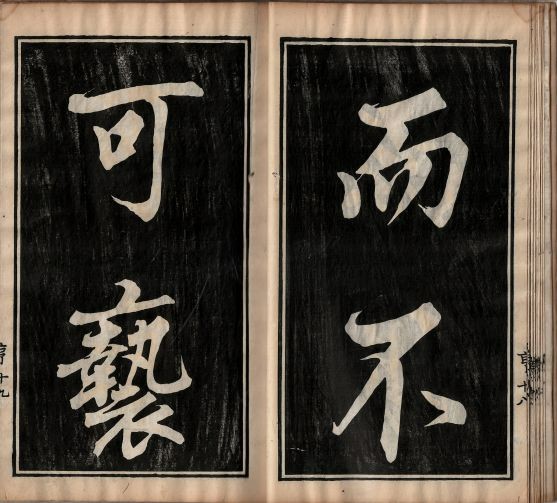 而不
十八
可褻
十九